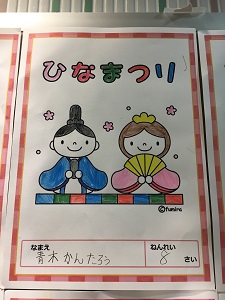 ひなまつり
©fumira
なまえ
青木 かんたろう
ねんれい
8 さい